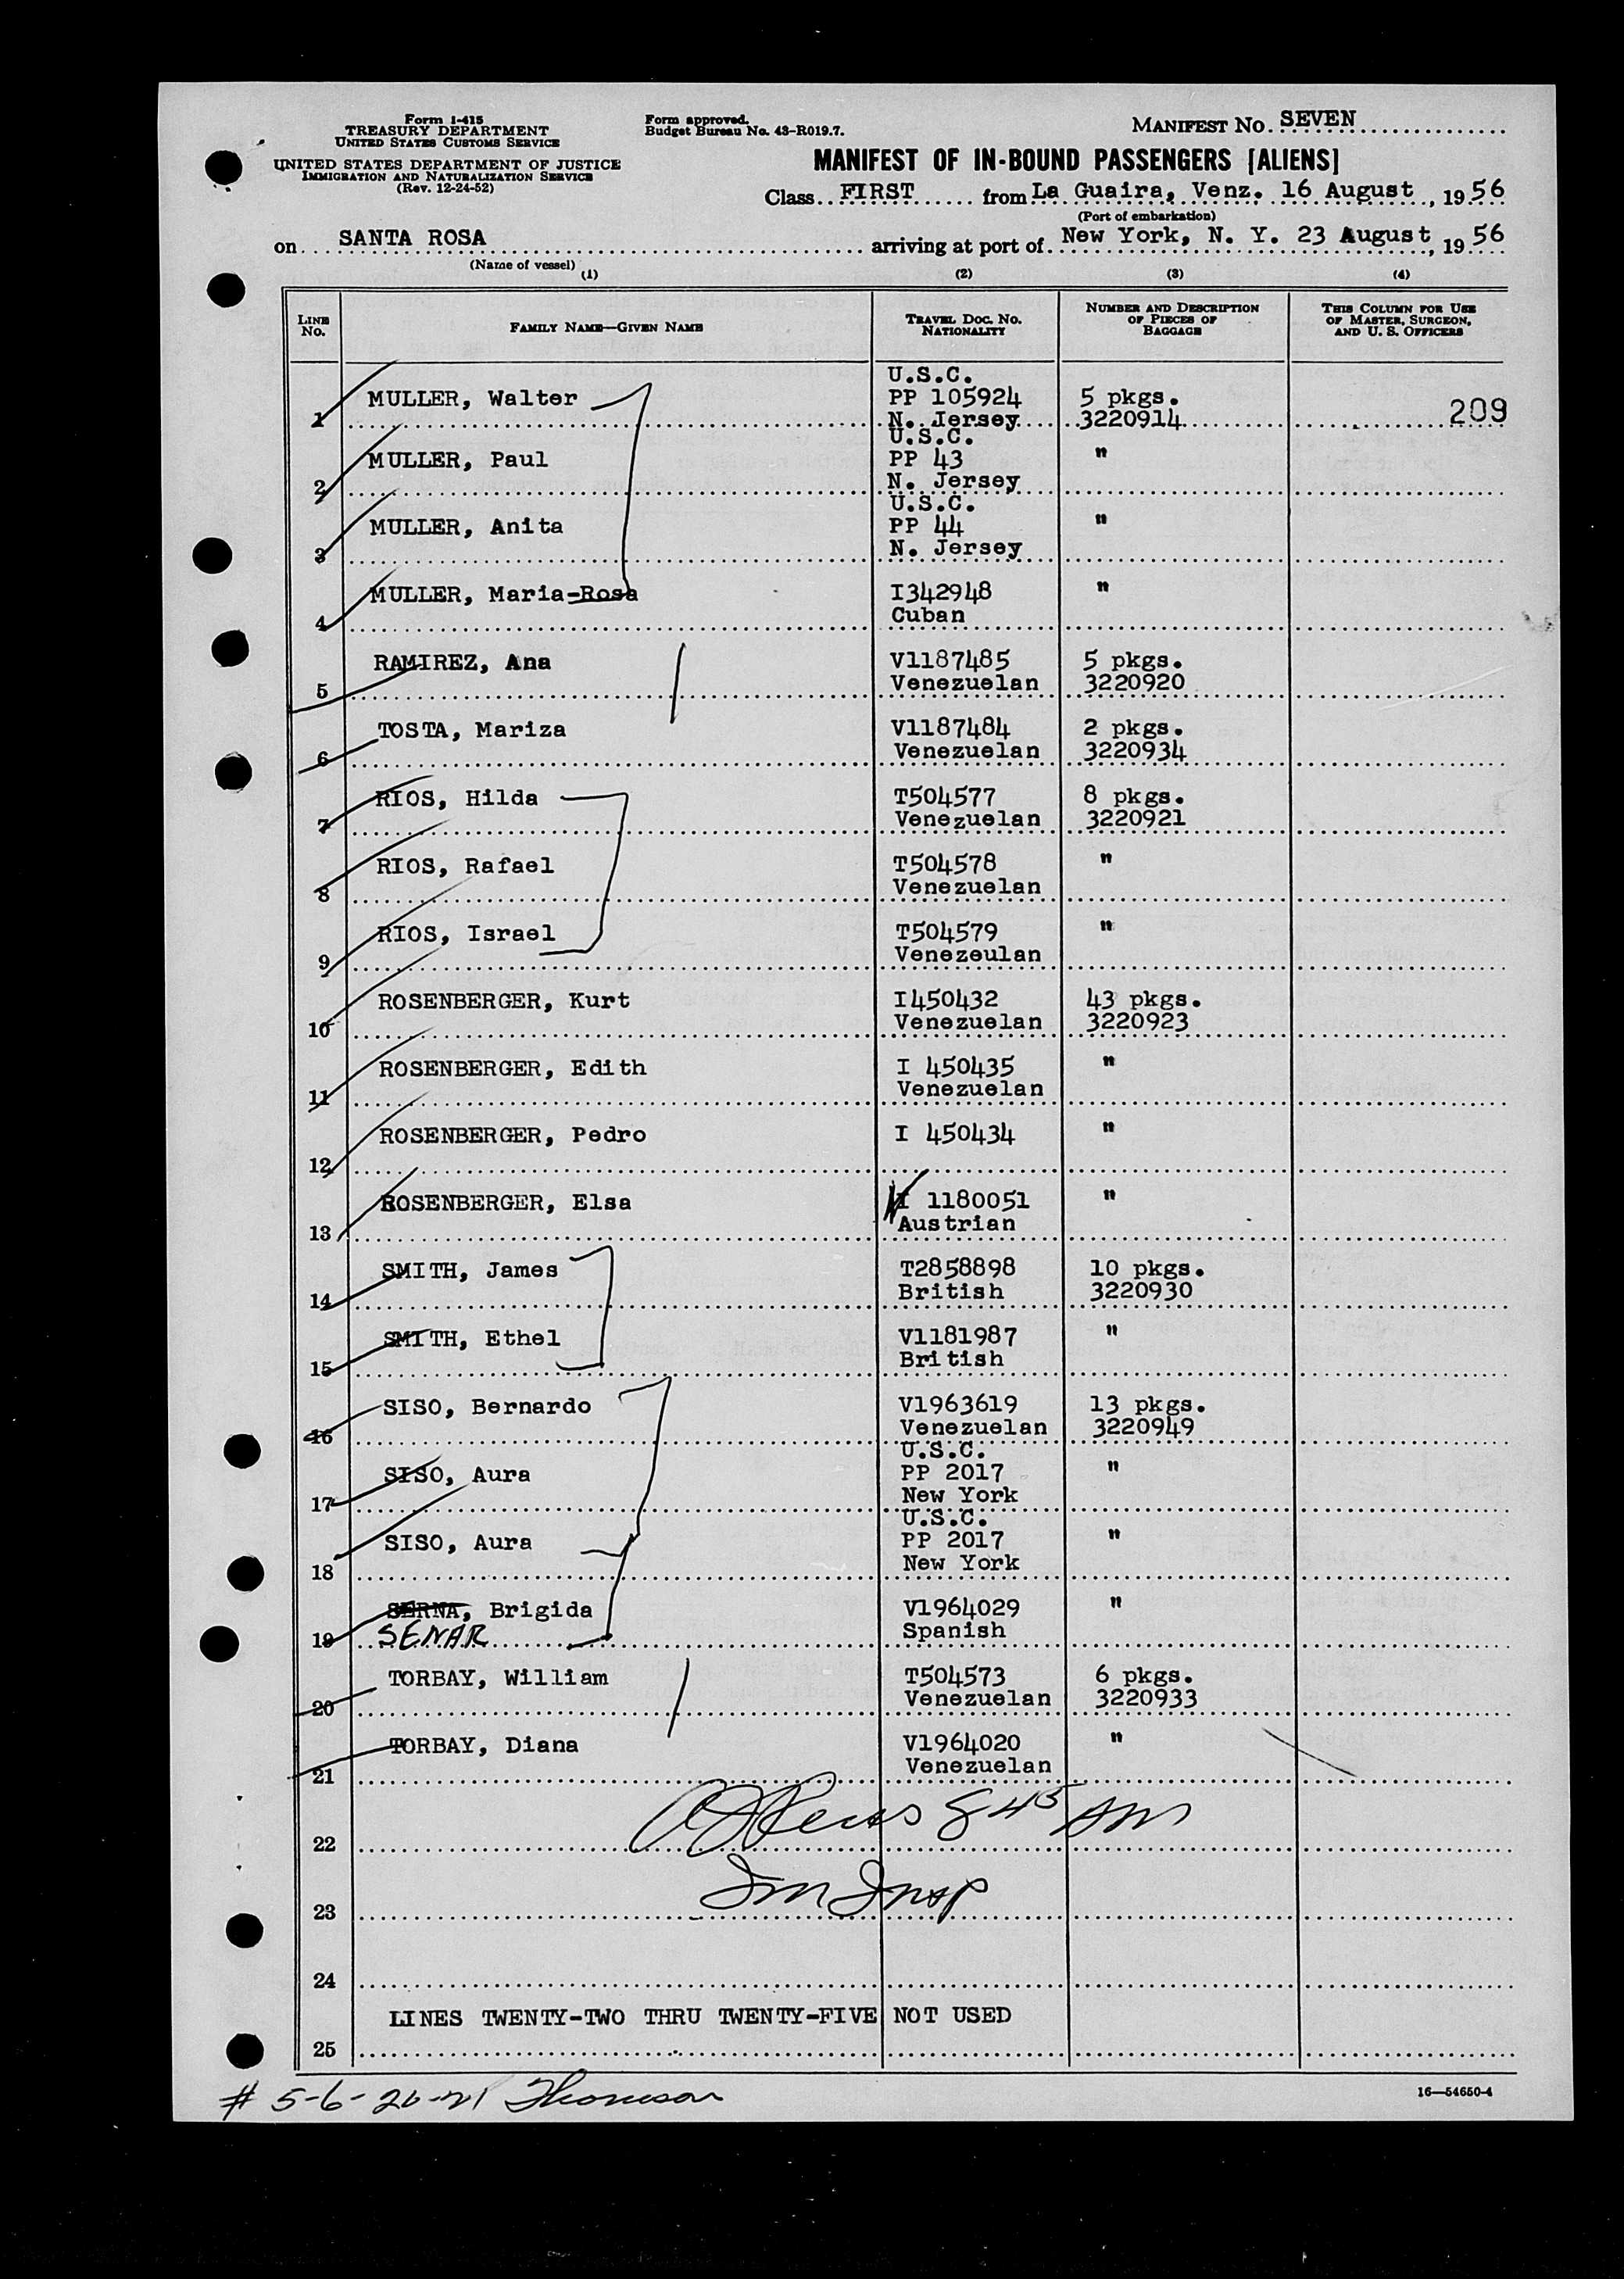 Form I-415
TREASURY DEPARTMENT
UNITED STATES CUSTOMS SERVICE
UNITED STATES DEPARTMENT OF JUSTICE
IMMIGRATION AND NATURALIZATION SERVICE
(Rev. 12-24-52)
Form approved.
Budget Bureau No. 43-R019.7.
MANIFEST NO. SEVEN
MANIFEST OF IN-BOUND PASSENGERS [ALIENS]
Class FIRST from La Guaira, Venz. 16 August, 1956
(Port of embarkation)
on SANTA ROSA arriving at port of New York, N. Y. 23 August, 1956
(Name of vessel)
(1) (2) (3) (4)
LINE NO.
FAMILY NAME—GIVEN NAME
TRAVEL DOC. NO. NATIONALITY
NUMBER AND DESCRIPTION OF PIECES OF BAGGAGE
THIS COLUMN FOR USE OF MASTER, SURGEON, AND U. S. OFFICERS
U.S.C.
MULLER, Walter PP 105924 5 pkgs.
1 N. Jersey 3220914 209
U.S.C.
MULLER, Paul PP 43 "
2 N. Jersey
U.S.C.
MULLER, Anita PP 44 "
3 N. Jersey
MULLER, Maria-Rosa I342948 "
4 Cuban
RAMIREZ, Ana V1187485 5 pkgs.
5 Venezuelan 3220920
TOSTA, Mariza V1187484 2 pkgs.
6 Venezuelan 3220934
RIOS, Hilda T504577 8 pkgs.
7 Venezuelan 3220921
RIOS, Rafael T504578 "
8 Venezuelan
RIOS, Israel T504579 "
9 Venezeulan
ROSENBERGER, Kurt I450432 43 pkgs.
10 Venezuelan 3220923
ROSENBERGER, Edith I 450435 "
11 Venezuelan
ROSENBERGER, Pedro I 450434 "
12
ROSENBERGER, Elsa V 1180051 "
13 Austrian
SMITH, James T2858898 10 pkgs.
14 British 3220930
SMITH, Ethel V1181987 "
15 British
SISO, Bernardo V1963619 13 pkgs.
16 Venezuelan 3220949
U.S.C.
SISO, Aura PP 2017 "
17 New York
U.S.C.
SISO, Aura PP 2017 "
18 New York
SERNA, Brigida V1964029 "
19 SENAR Spanish
TORBAY, William T504573 6 pkgs.
20 Venezuelan 3220933
TORBAY, Diana V1964020 "
21 Venezuelan
22 8 45 AM
23 Im Insp
24
LINES TWENTY-TWO THRU TWENTY-FIVE NOT USED
25
16—54650-4
# 5-6-20-21 Thomson